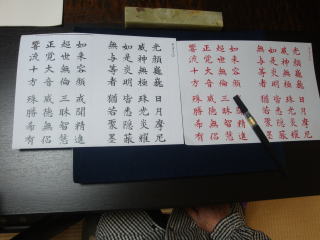 光顔巍巍 日月摩尼
威神無極 珠光炎耀
如是炎明 皆悉隠蔽
無與等者 猶若聚墨
如来容顔 戒聞精進
超世無倫 三昧智慧
正覚大音 威徳無侶
響流十方 殊勝希有
光顔巍巍 日月摩尼
威神無極 珠光炎耀
如是炎明 皆悉隠蔽
無與等者 猶若聚墨
如来容顔 戒聞精進
超世無倫 三昧智慧
正覚大音 威徳無侶
響流十方 殊勝希有